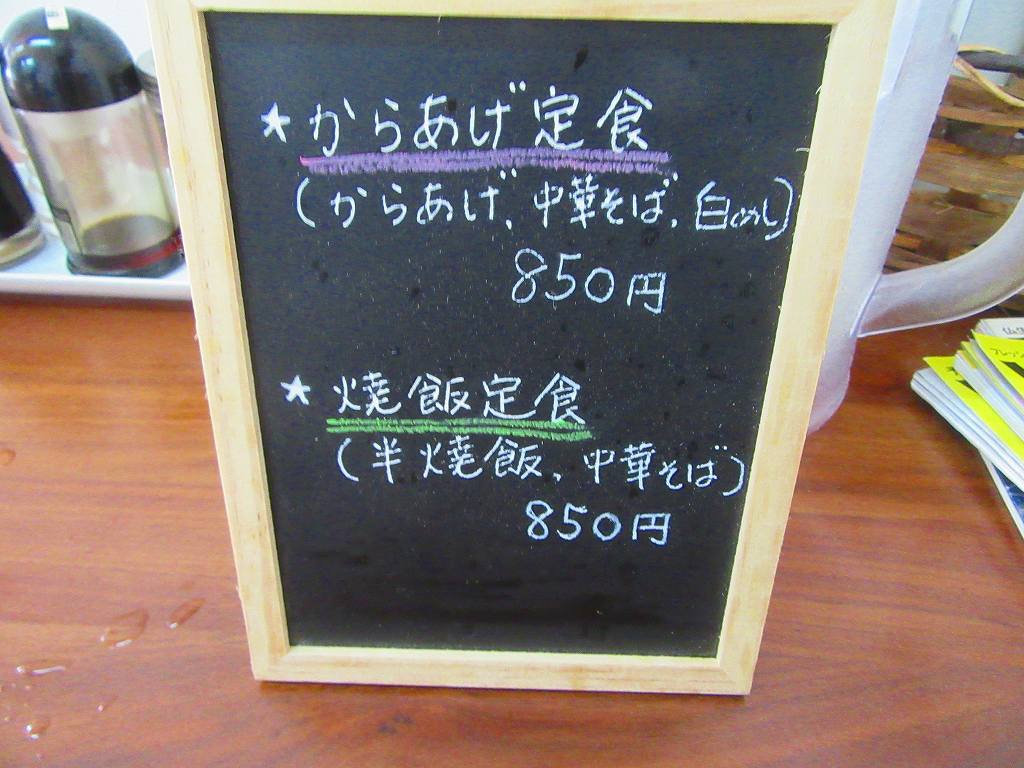 ★からあげ定食
(からあげ、中華そば、白めし)
850円
★焼飯定食
(半焼飯、中華そば)
850円